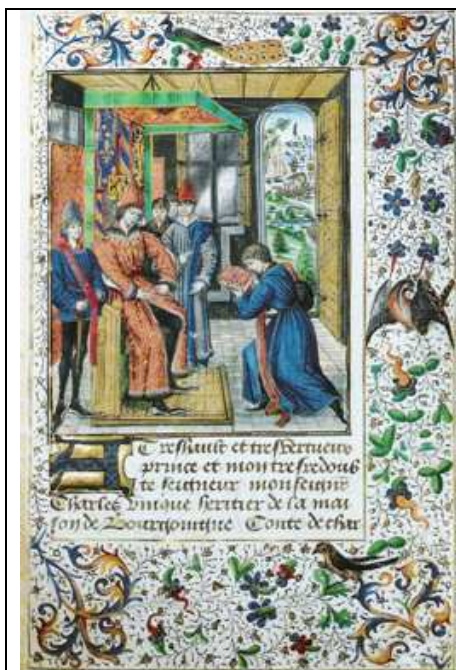 A Treshault et tresvertueux
prince et mon tresredoub
te seigneur monseignr
Charles vnique heritier de la mai
son de Bourgoingne Conte de char